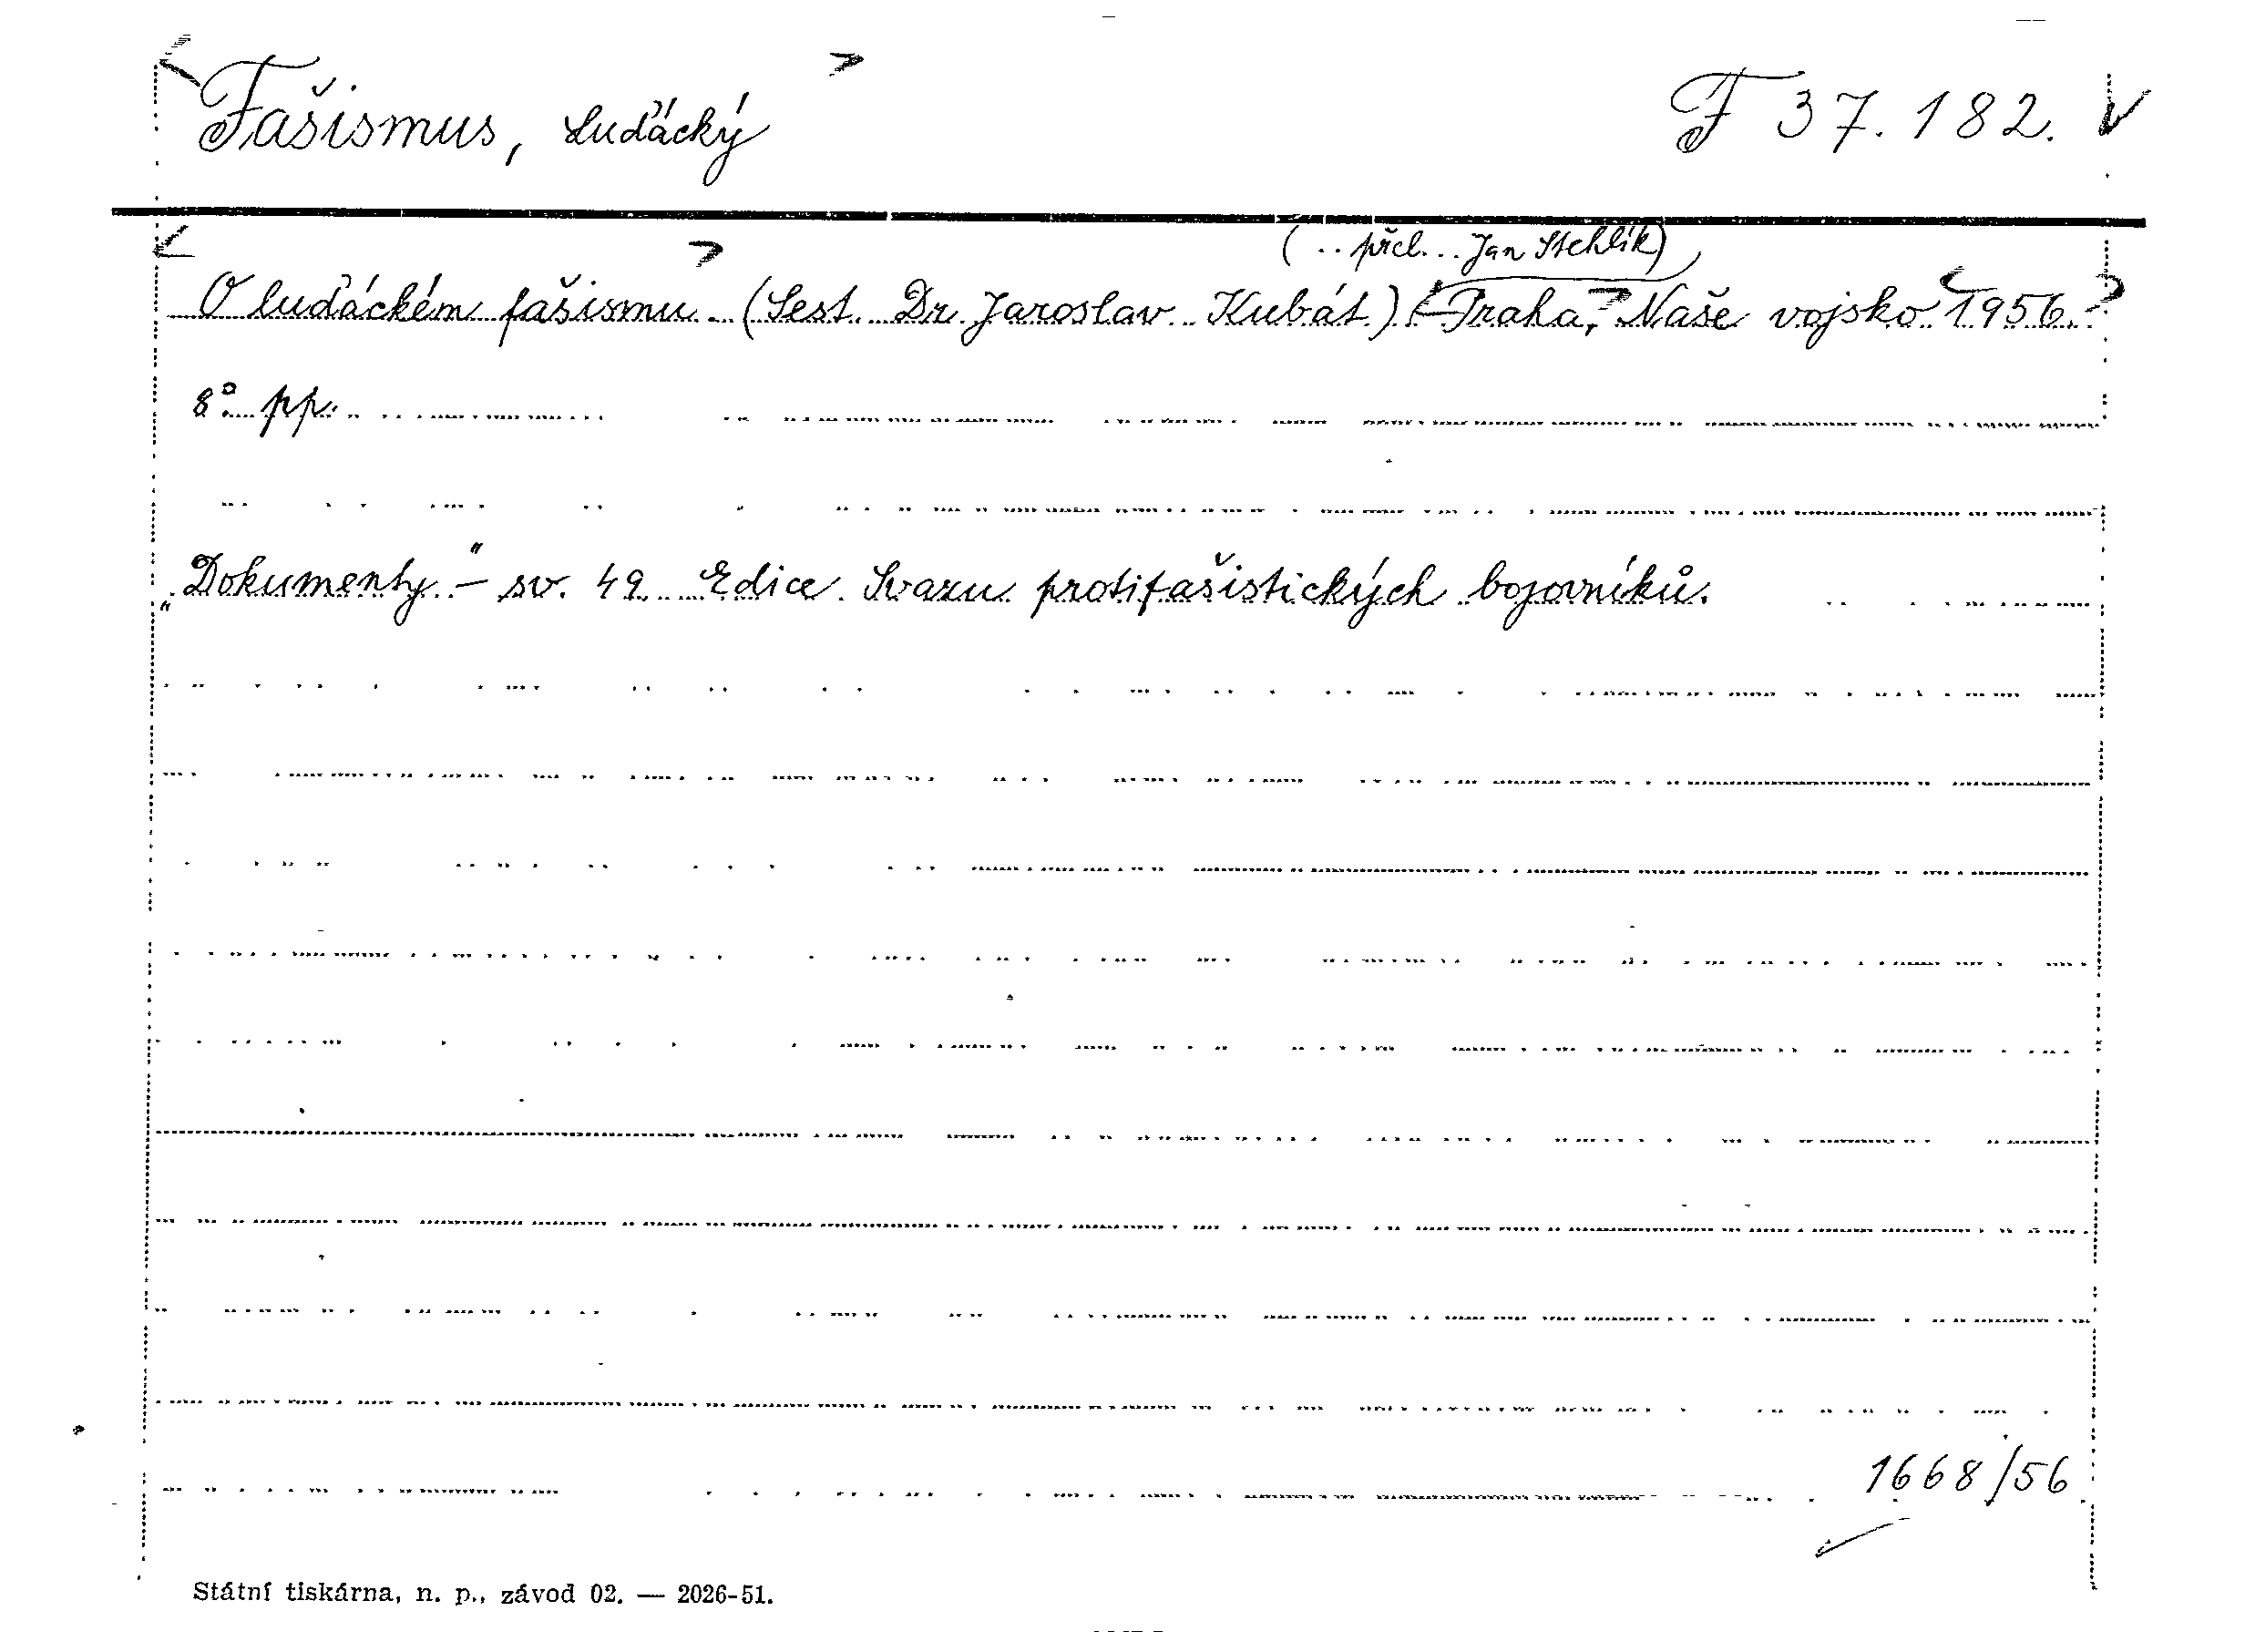 Fašismus, luďácký
F 37.182.
(.. přel... Jan Stehlík)
O luďáckém fašismu. (Sest. Dr. Jaroslav Kubát.) Praha, Naše vojsko 1956.
8° pp.
„Dokumenty“ - sv. 49. Edice Svazu protifašistických bojovníků.
1668/56
Státní tiskárna, n. p., závod 02. — 2026-51.